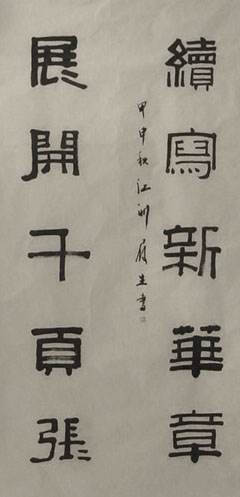 續寫新華章
甲申秋江生書
展開千頁張